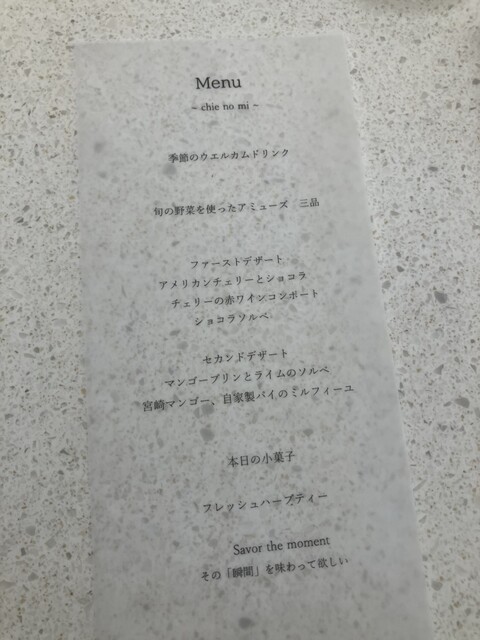 Menu
~ chie no mi ~
季節のウエルカムドリンク
旬の野菜を使ったアミューズ　三品
ファーストデザート
アメリカンチェリーとショコラ
チェリーの赤ワインコンポート
ショコラソルベ
セカンドデザート
マンゴープリンとライムのソルベ
宮崎マンゴー、自家製パイのミルフィーユ
本日の小菓子
フレッシュハーブティー
Savor the moment
その「瞬間」を味わって欲しい